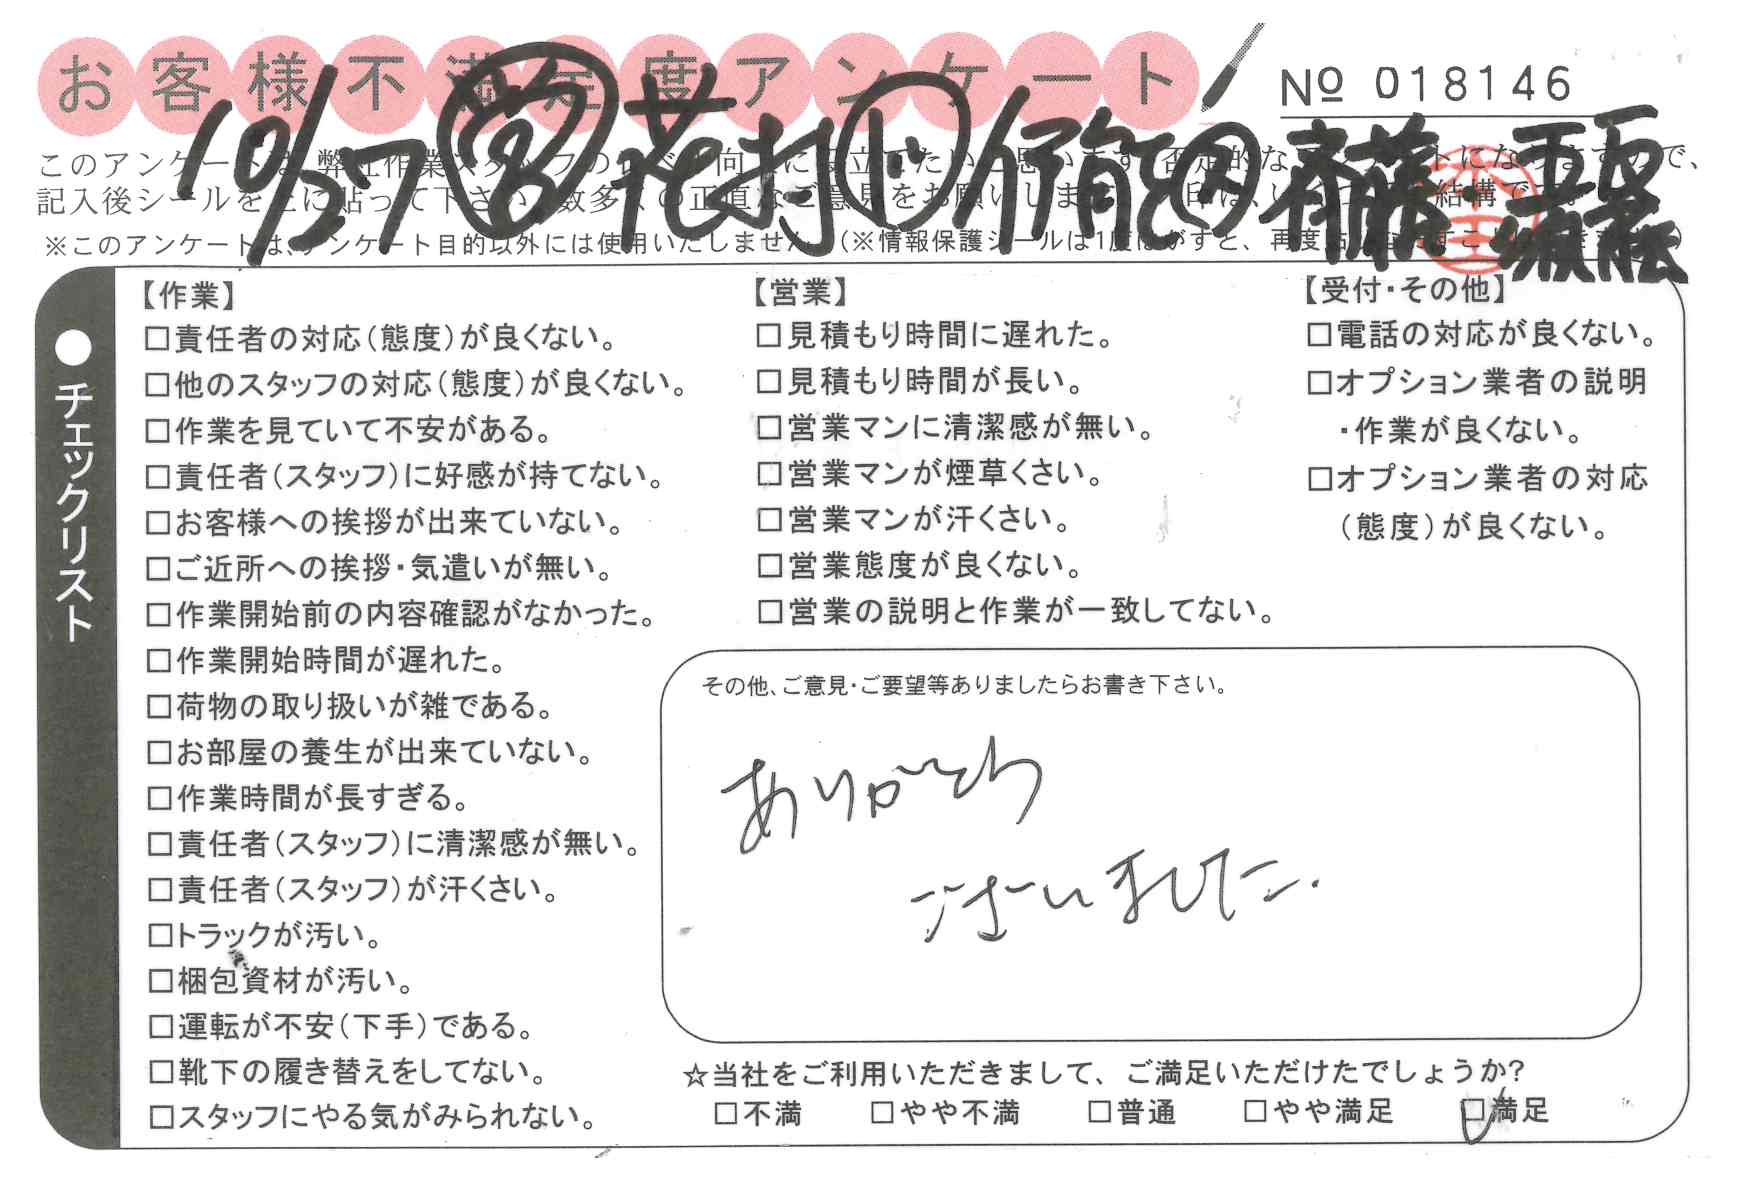 お客様不満足度アンケート
№ 018146
10/27 営 花村 伊能 斉藤
※このアンケートは、アンケート目的以外には使用いたしません。(※情報保護シールは1度はがすと、再度
【作業】
□責任者の対応(態度)が良くない。
□他のスタッフの対応(態度)が良くない。
□作業を見ていて不安がある。
□責任者(スタッフ)に好感が持てない。
□お客様への挨拶が出来ていない。
□ご近所への挨拶・気遣いが無い。
□作業開始前の内容確認がなかった。
□作業開始時間が遅れた。
□荷物の取り扱いが雑である。
□お部屋の養生が出来ていない。
□作業時間が長すぎる。
□責任者(スタッフ)に清潔感が無い。
□責任者(スタッフ)が汗くさい。
□トラックが汚い。
□梱包資材が汚い。
□運転が不安(下手)である。
□靴下の履き替えをしてない。
□スタッフにやる気がみられない。
【営業】
□見積もり時間に遅れた。
□見積もり時間が長い。
□営業マンに清潔感が無い。
□営業マンが煙草くさい。
□営業マンが汗くさい。
□営業態度が良くない。
□営業の説明と作業が一致してない。
【受付・その他】
□電話の対応が良くない。
□オプション業者の説明
・作業が良くない。
□オプション業者の対応
(態度)が良くない。
●チェックリスト
その他、ご意見・ご要望等ありましたらお書き下さい。
ありがとう
ございました.
☆当社をご利用いただきまして、ご満足いただけたでしょうか?
□不満 □やや不満 □普通 □やや満足 □満足